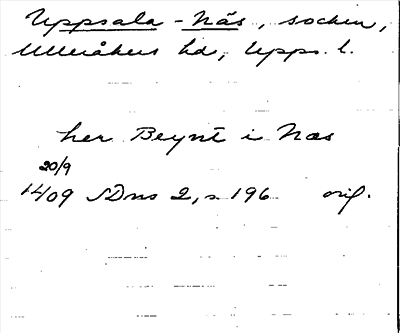 Uppsala-Näs, socken,
Ulleråkers hd, Upps. l.
her Beynt i Næs
20/9
1409 SDns 2, s. 196 orig.